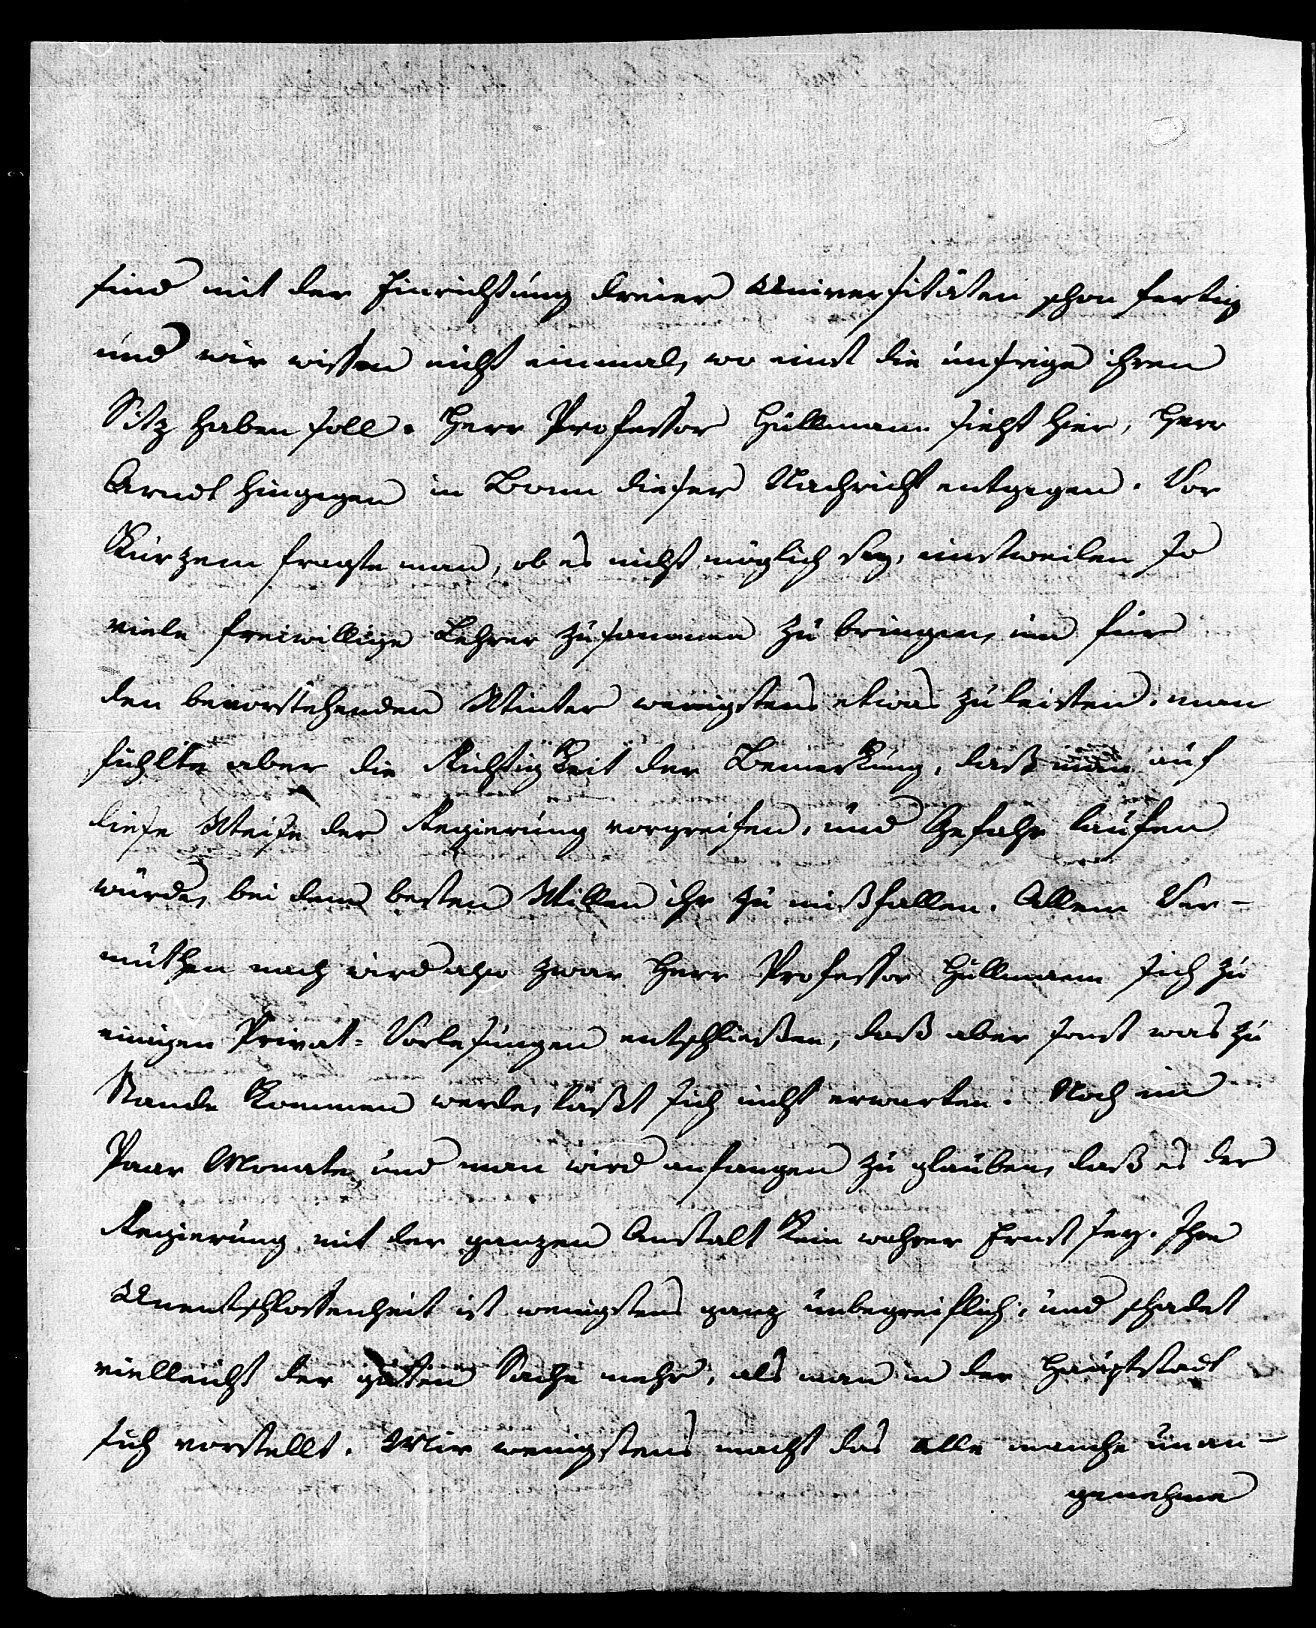 sind mit der Einrichtung dreier Universitäten schon fertig
und wir wissen nicht einmal, wo einst die unsrige ihren
Sitz haben soll. Herr Professor Hüllmann sieht hier, Herr
Arndt hingegen in Bonn dieser Nachricht entgegen. Vor
Kurzem fragte man, ob es nicht möglich sey, einstweilen so
viele freiwillige Lehrer zusammen zu bringen, um für
den bevorstehenden Winter wenigstens etwas zu leisten; man
fühlte aber die Richtigkeit der Bemerkung, daß man auf
diese Weise der Regierung vorgreifen, und Gefahr laufen
würde, bei dem besten Willen ihr zu mißfallen. Allem Ver-
muthen nach wird also zwar Herr Professor Hüllmann sich zu
einigen Privat-Vorlesungen entschließen, daß aber sonst was zu
Stande kommen werde, läßt sich nicht erwarten. Noch ein
Paar Monate, und man wird anfangen zu glauben, daß es der
Regierung mit der ganzen Anstalt kein wahrer Ernst sey. Ihre
Unentschlossenheit ist wenigstens ganz unbegreiflich, und schadet
vielleicht der guten Sache mehr, als man in der Hauptstadt
sich vorstellt. Mir wenigstens macht das alle manche unan-
genehme